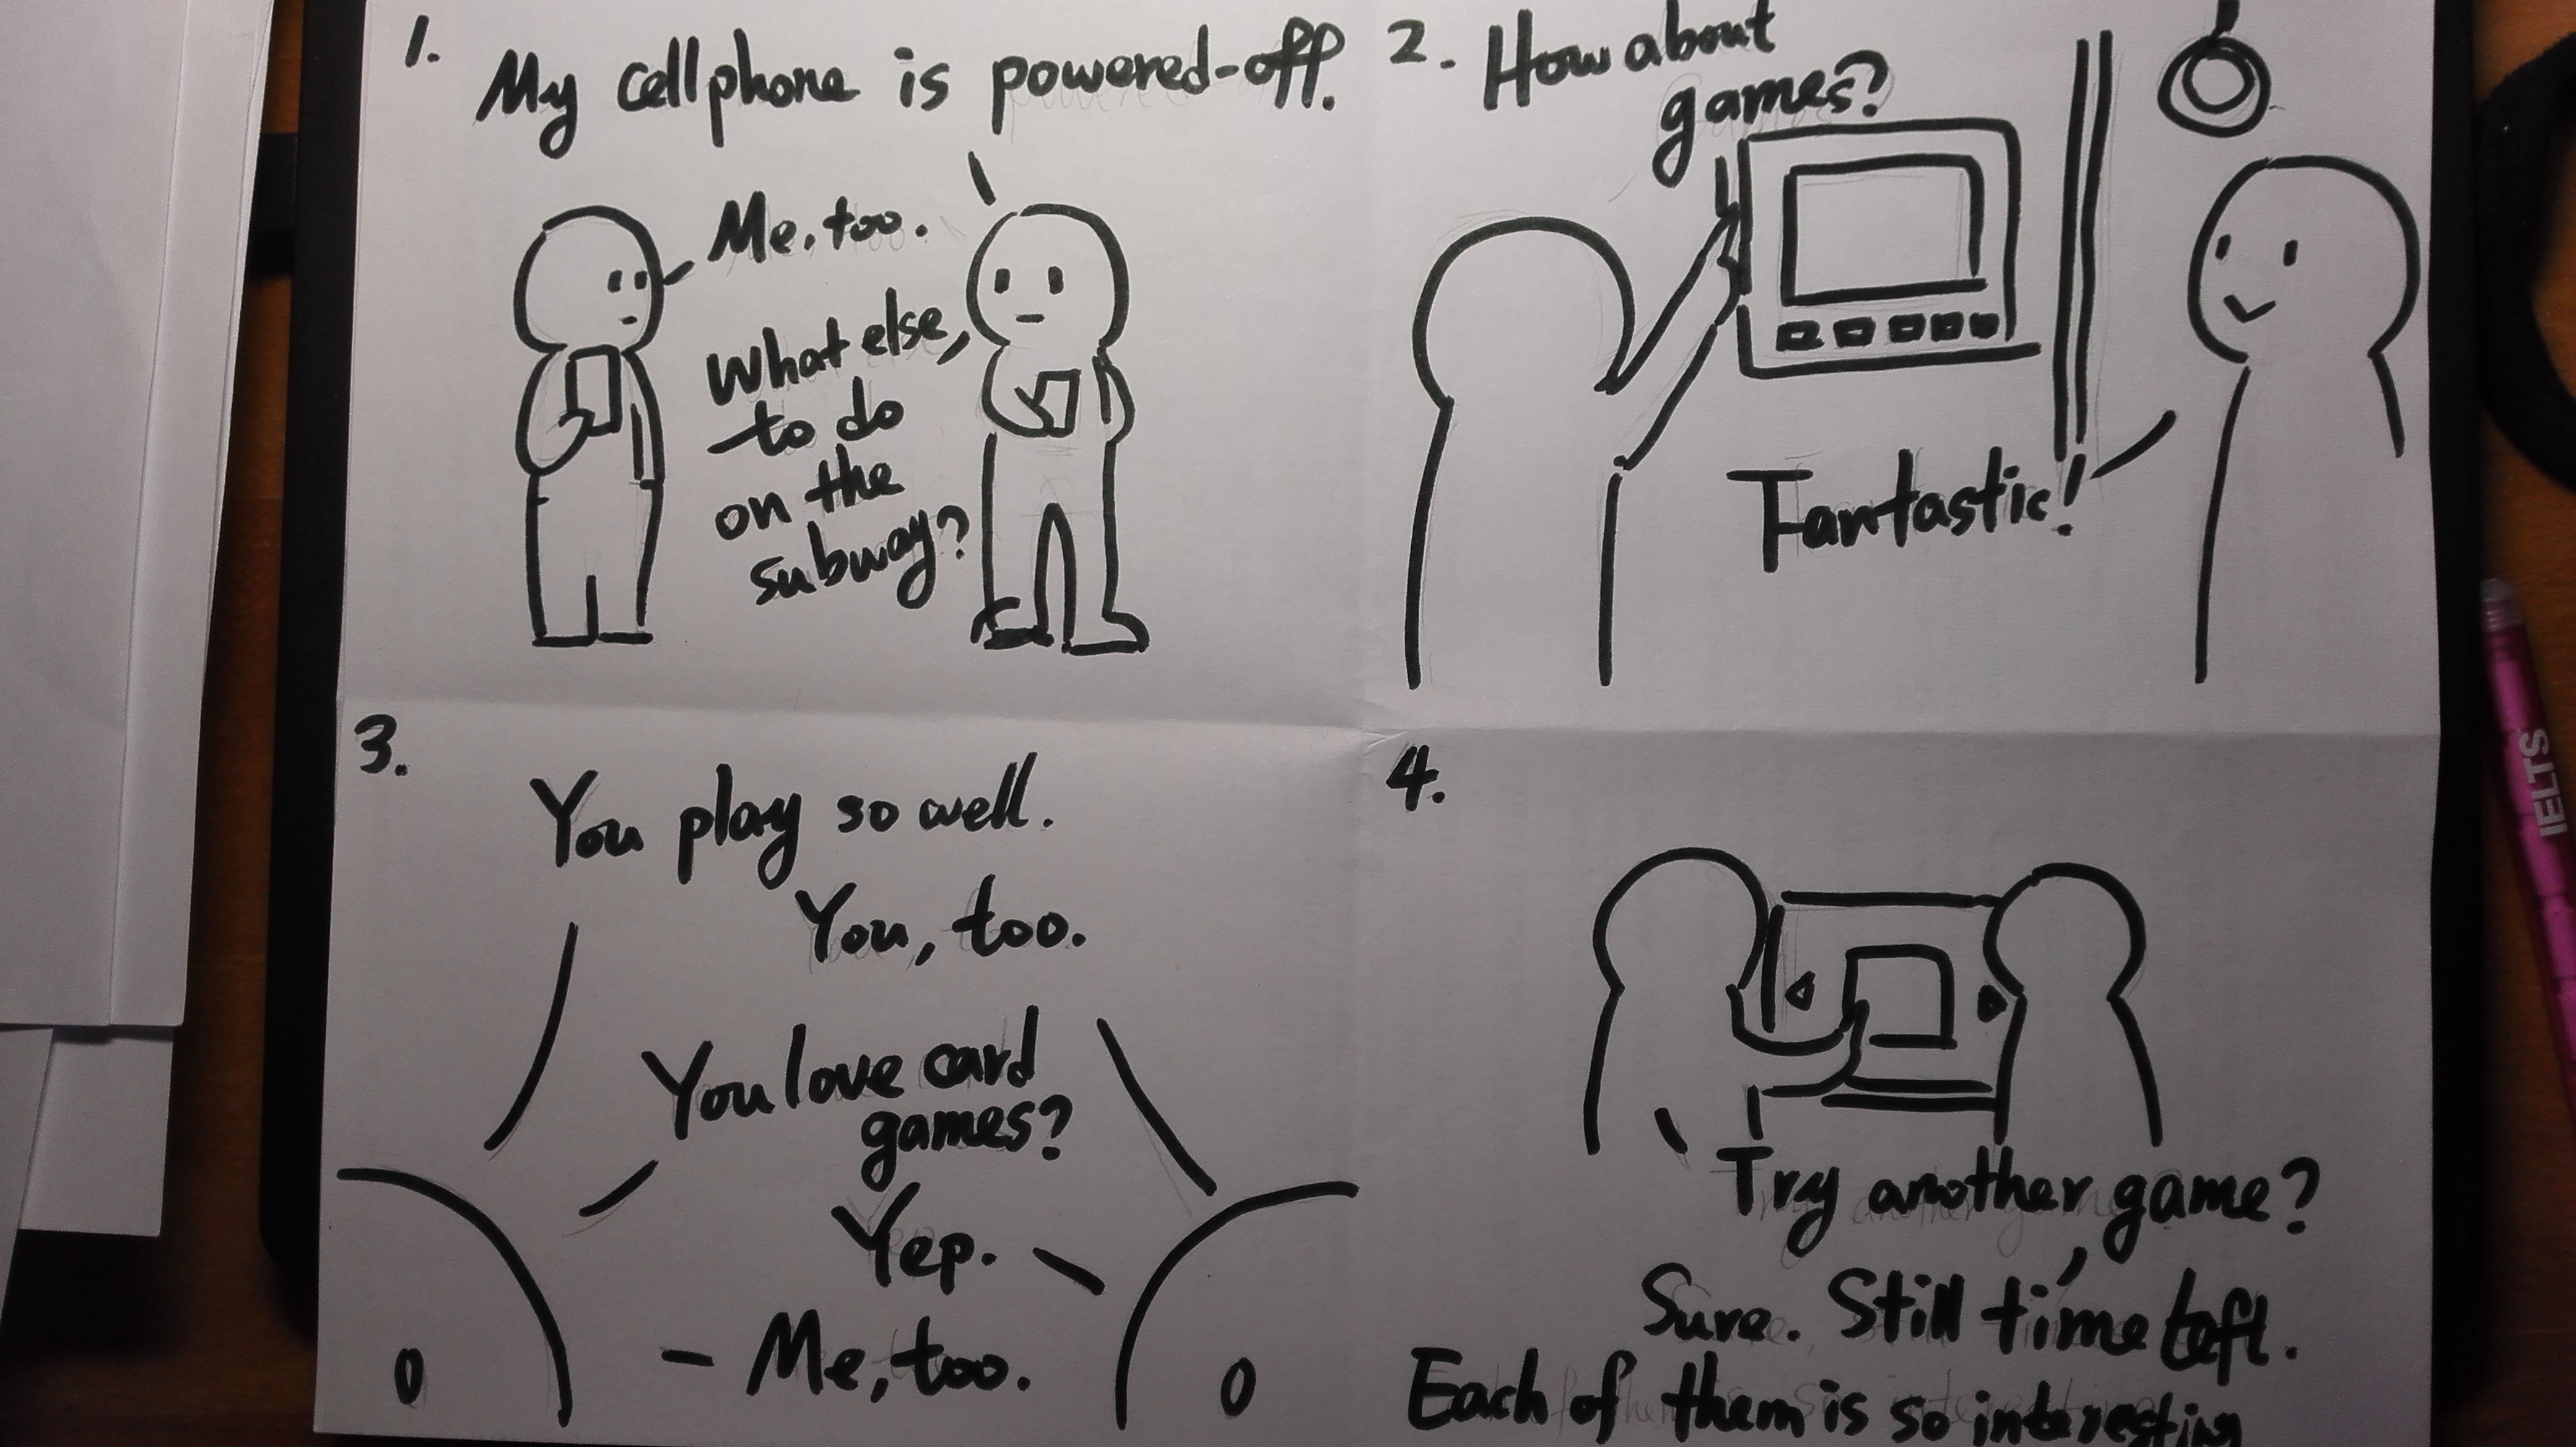 1.
My cellphone is powered-off.
Me, too.
What else,
to do
on the
subway?
2. How about
games?
Fantastic!
3.
You play so well.
You, too.
You love card
games?
Yep.
Me, too.
4.
Try another game?
Sure. Still time left.
Each of them is so interesting
IELTS